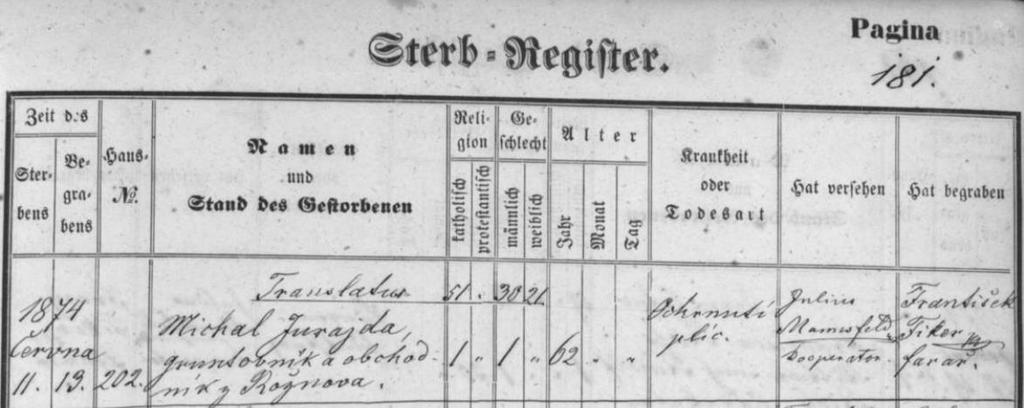 Pagina
181.
Sterb-Register.
Zeit des
Ster-
bens
Be-
gra-
bens
Haus-
No.
Namen
und
Stand des Gestorbenen
Reli-
gion
katholisch
protestantisch
Ge-
schlecht
männlich
weiblich
Alter
Jahr
Monat
Tag
Krankheit
oder
Todesart
Hat versehen
Hat begraben
Translatus 51. . 30 21
1874
června
11. 13. 202.
Michal Jurajda,
gruntovník a obchod-
ník z Rožnova.
1 „ 1 „ 62 „ „
Ochrnutí
plic.
Julius
Cooperator
František
Fiker
farář.